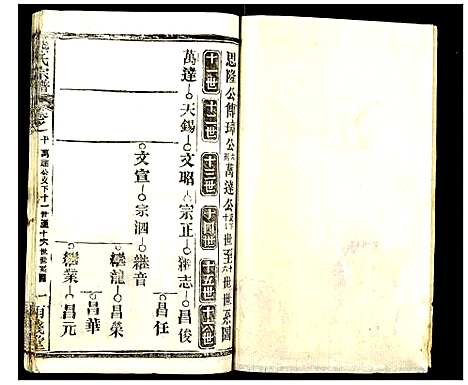 思隆公傳璋公萬達公世至世世系圖
十一世 十二世 十三世 十四世 十五世 十六世
萬達 天錫 文昭 宗正 繼志 昌俊
文宣 宗泗 繼音 昌任
繼龍 昌榮
昌華
繼業 昌元
氏宗譜 卷
十萬達公支下十一世至十六世世系圖
一 有義堂